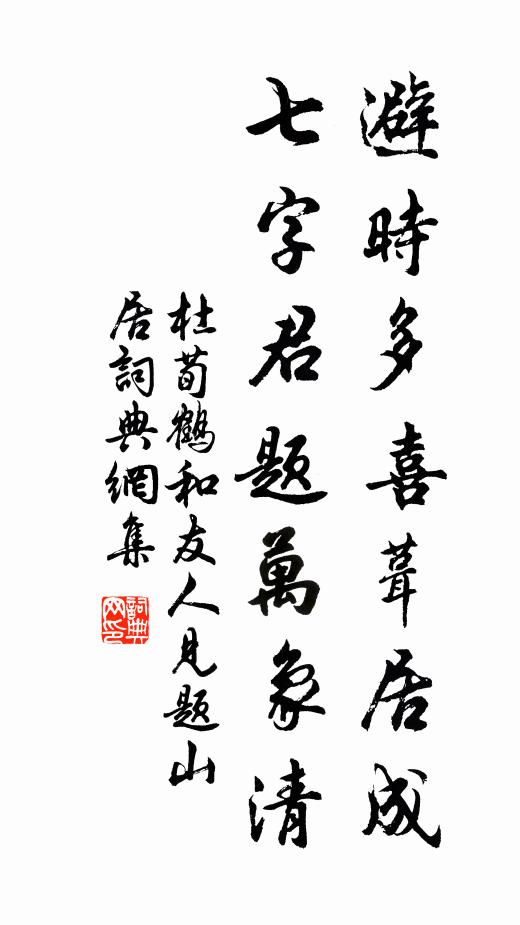 避時多喜葺居成
七字君題萬象清
杜荀鶴和友人見題山
居詞典網集
詞典
网印